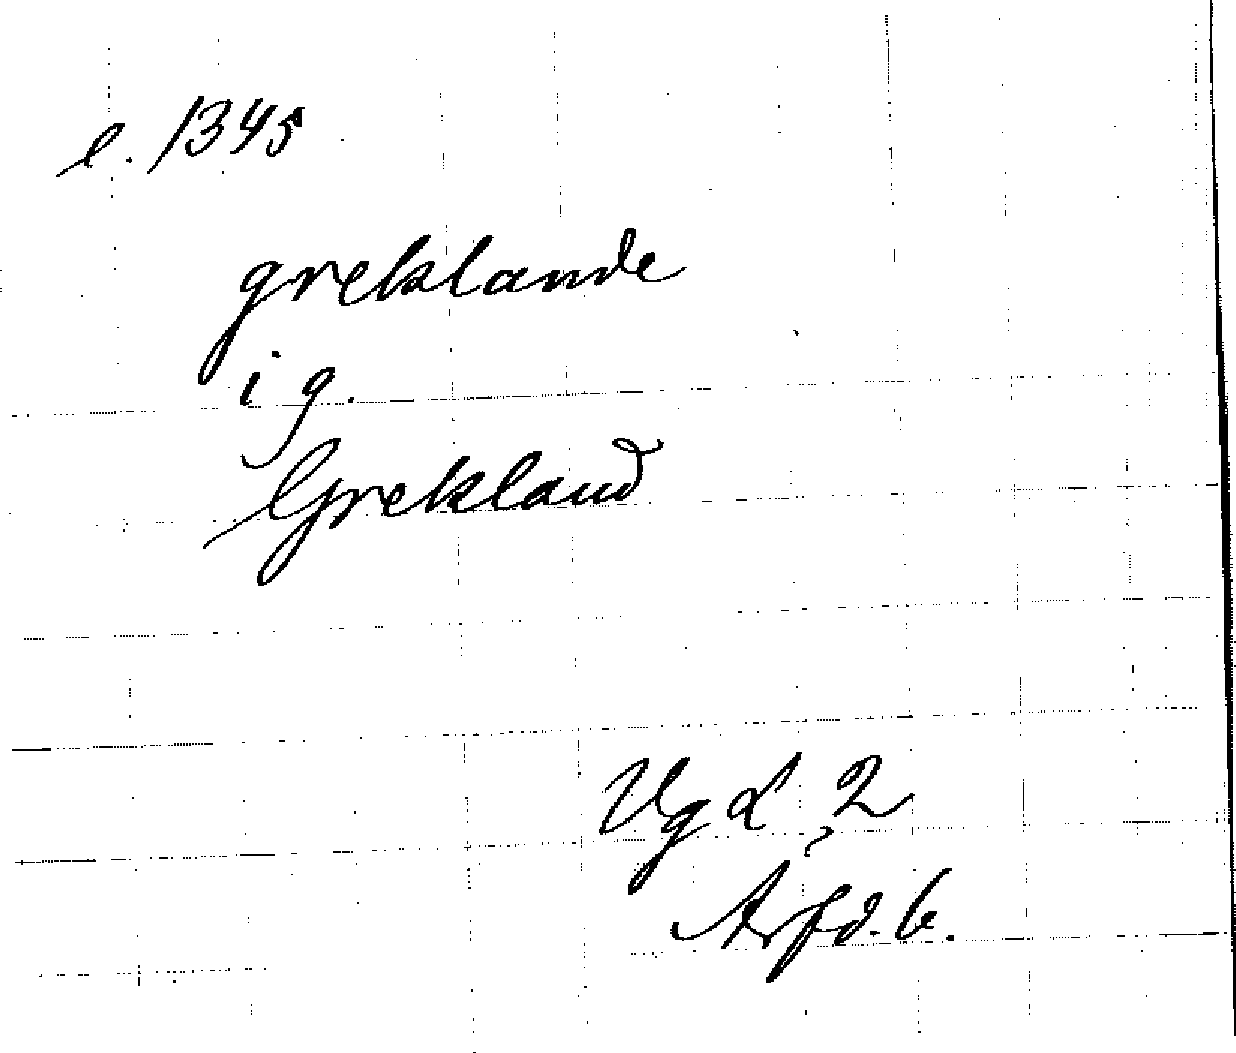 c. 1345
greklande
i g.
Grekland
Vg L 2
Arfd. b.